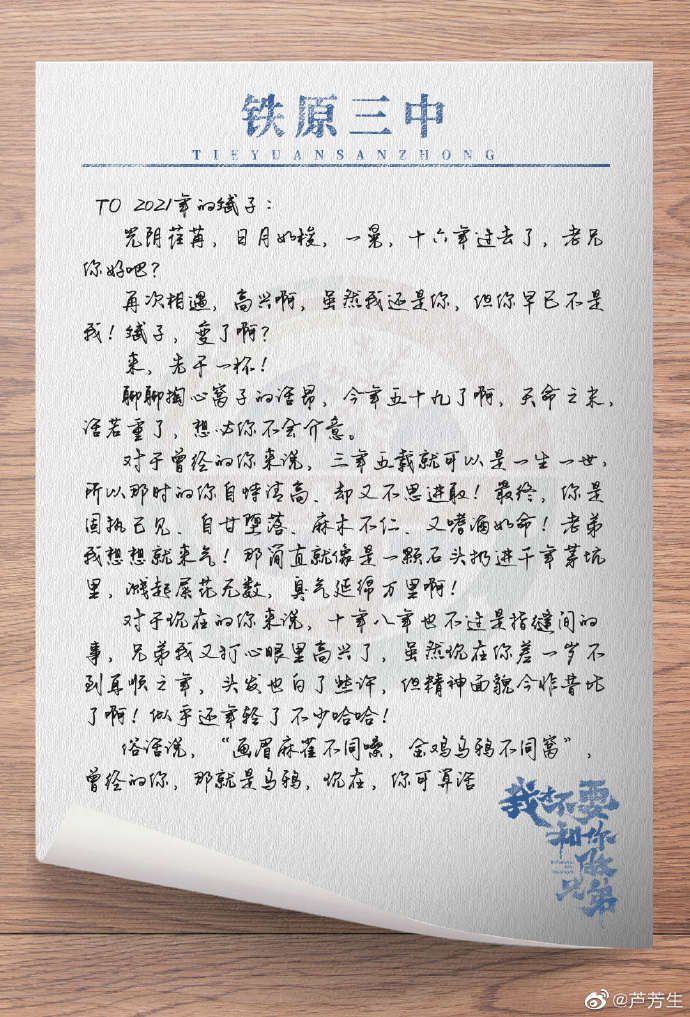 铁原三中
TIEYUANSANZHONG
TO 2021年的斌子：
光阴荏苒，日月如梭，一晃，十六年过去了，老兄
你好吧？
再次相遇，高兴啊，虽然我还是你，但你早已不是
我！斌子，变了啊？
来，先干一杯！
聊聊掏心窝子的话昂，今年五十九了啊，天命之末，
话若重了，想必你不会介意。
对于曾经的你来说，三年五载就可以是一生一世，
所以那时的你自恃清高、却又不思进取！最终，你是
固执己见、自甘堕落、麻木不仁、又嗜酒如命！老弟
我想想就来气！那简直就像是一颗石头扔进千年茅坑
里，溅起屎花无数，臭气延绵万里啊！
对于现在的你来说，十年八年也不过是指缝间的
事，兄弟我又打心眼里高兴了，虽然现在你差一岁不
到耳顺之年，头发也白了些许，但精神面貌今非昔比
了啊！似乎还年轻了不少哈哈！
俗话说，“画眉麻雀不同嗓，金鸡乌鸦不同窝”，
曾经的你，那就是乌鸦，现在，你可算活
我才不要
和你
做
兄弟
@芦芳生